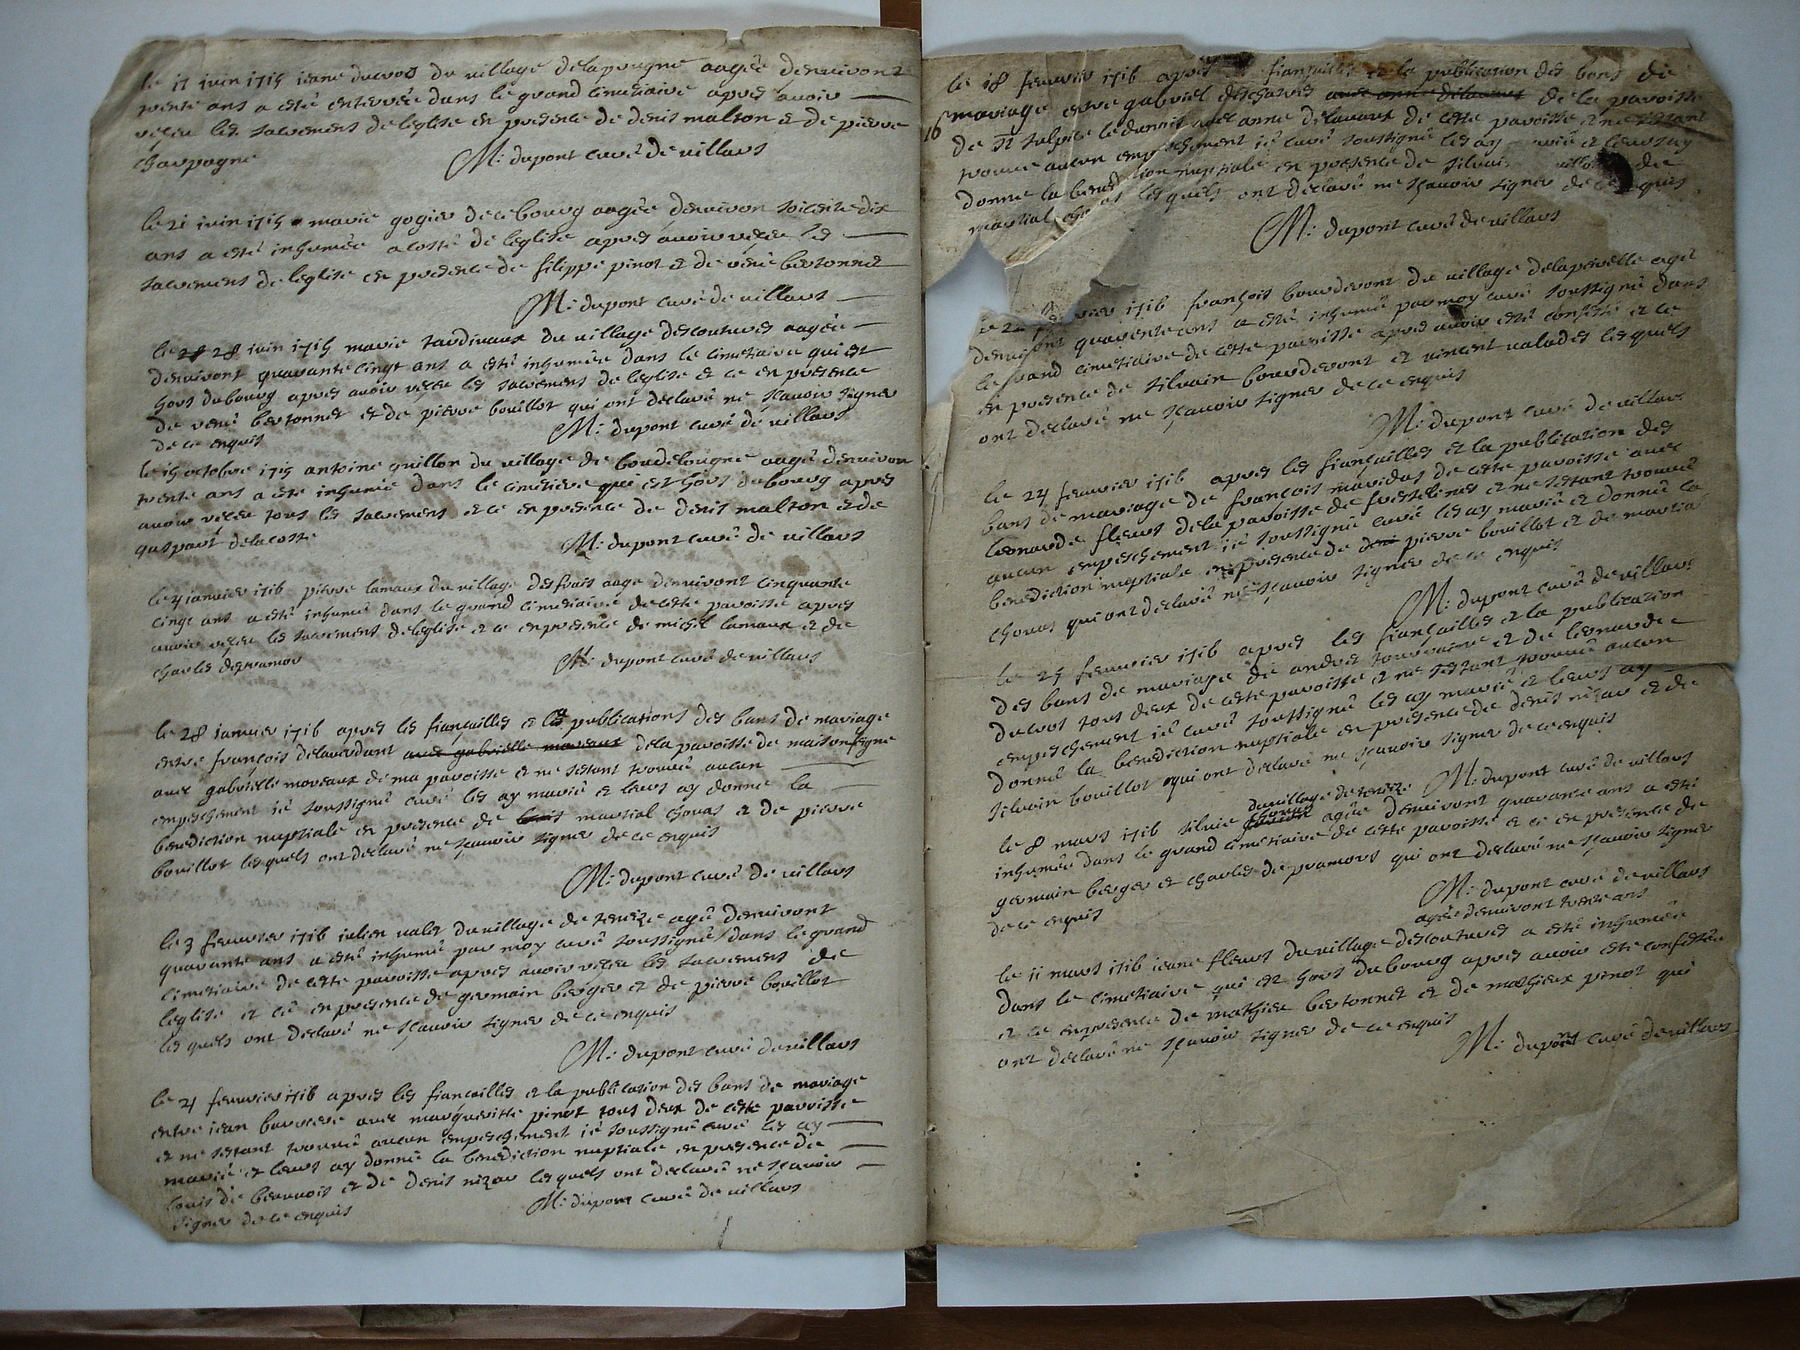 le 17 iuin 1715 ieane ducros du village delapougne aagée denviront
trente ans a esté enterrée dans le grand cimetiaire apres avoir
receu les sacrement de leglise en presence de denis malton et de pierre
champagne
M: dupont curé de villars
le 21 iuin 1715 marie gogier de ce bourg aagée denviron soicente dix
ans a esté inhumée a costé de leglise apres avoir receu les
sacrement de leglise en presence de filippe pinot et de rené bertonnet
M: dupont curé de villars
le 28 iuin 1715 marie tardivaux du village descoutures aagée
denviront quarante cinqt ans a esté inhumée dans le cimetiaire qui est
hors du bourg apres avoir receu les sacrement de leglise et ce en presence
de rené bertonnet et de pierre bouillot qui ont declaré ne sçavoir signer
de ce enquis
M: dupont curé de villars
le 15 octobre 1715 antoine guillon du village de boudelougne aagé denviron
trente ans a esté inhumé dans le cimetiere qui est hors du bourg apres
avoir receu tous les sacrement et ce en presence de denis malton et de
gaspart delacoste
M: dupont curé de villars
le 4 ianvier 1716 pierre lamaux du village desfrais aagé denviront cinquante
cinqt ans a esté inhumé dans le grand cimetiaire de ceste paroisse apres
avoir receu les sacrement de leglise et ce en presence de michel lamaux et de
charles depramor
M: dupont curé de villars
le 28 ianvier 1716 apres les fiançailles et les publications des bans de mariage
entre françois delavredant avec gabrielle moreaux de la paroisse de maisonfeigne
avec gabrielle moreaux de ma paroisse et ne sestant trouvé aucun
empeschement ie soussigné curé les ay marié et leurs ay donné la
benediction nuptiale en presence de martial chomas et de pierre
bouillot lesquels ont declaré ne sçavoir signer de ce enquis
M: dupont curé de villars
le 3 feuvrier 1716 iulien vales du village de tereize agé denviront
quarante ans a esté inhumé par moy curé soussigné dans le grand
cimetiaire de ceste paroisse apres avoir receu les sacrement de
leglise et ce en presence de germain berger et de pierre bouillot
lesquels ont declaré ne sçavoir signer de ce enquis
M: dupont curé de villars
le 4 feuvrier 1716 apres les fiançailles et la publication des bans de mariage
entre iean barriere avec margueritte pinot tous deux de ceste paroisse
et ne sestant trouvé aucun empeschement ie soussigné curé les ay
marié et leurs ay donné la benediction nuptiale en presence de
louis de beauvois et de denis nizar lesquels ont declaré ne sçavoir
signer de ce enquis
M: dupont curé de villars
le 18 feuvrier 1716 apres fiançailles et la publication des bans de
16 mariage entre gabriel deschasses de la paroisse
de St sulpice ledunoit avec anne delavaux de ceste paroisse et ne sestant
trouvé aucun empeschement ie curé soussigné les ay marié et leurs ay
donné la benediction nuptiale en presence de silvain de
martial lesquels ont declaré ne sçavoir signer de ce enquis
M: dupont curé de villars
le 2 feuvrier 1716 françois bourderont du village delapevelle agé
denviront quarente ans a esté inhumé par moy curé soussigné dans
le grand cimetiaire de ceste paroisse apres avoir esté confessé et ce
en presence de silvain bourderont et vincent valades lesquels
ont declaré ne sçavoir signer de ce enquis
M: dupont curé de villars
le 24 feuvrier 1716 apres les fiançailles et la publication des
bans de mariage de françois maridas de ceste paroisse avec
leonarde fleurs de la paroisse de fresselines et ne sestant trouvé
aucun empeschement ie soussigné curé les ay marié et donné la
benediction nuptiale en presence de pierre bouillot et de martial
chomas qui ont declaré ne sçavoir signer de ce enquis
M: dupont curé de villars
le 25 feuvrier 1716 apres les fiançailles et la publication
des bans de mariage de andre touraine et de leonarde
ducros tous deux de ceste paroisse et ne sestant trouvé aucun
empeschement ie curé soussigné les ay marié et leurs ay
donné la benediction nuptiale en presence de denis nizar et de
silvain bouillot qui ont declaré ne sçavoir signer de ce enquis
M: dupont curé de villars
du village de tereize
le 8 mars 1716 silvie agée denviront quarante ans a esté
inhumée dans le grand cimetiaire de ceste paroisse et ce en presence de
germain berger et charles depramors qui ont declaré ne sçavoir signer
de ce enquis
M: dupont curé de villars
agée denviront trente ans
le 11 mars 1716 ieane fleurs du village descoutures a esté inhumée
dans le cimetiaire qui est hors du bourg apres avoir esté confessée
et ce en presence de mathieu bertonnet et de mathieux pinot qui
ont declaré ne sçavoir signer de ce enquis
M: dupont curé de villars